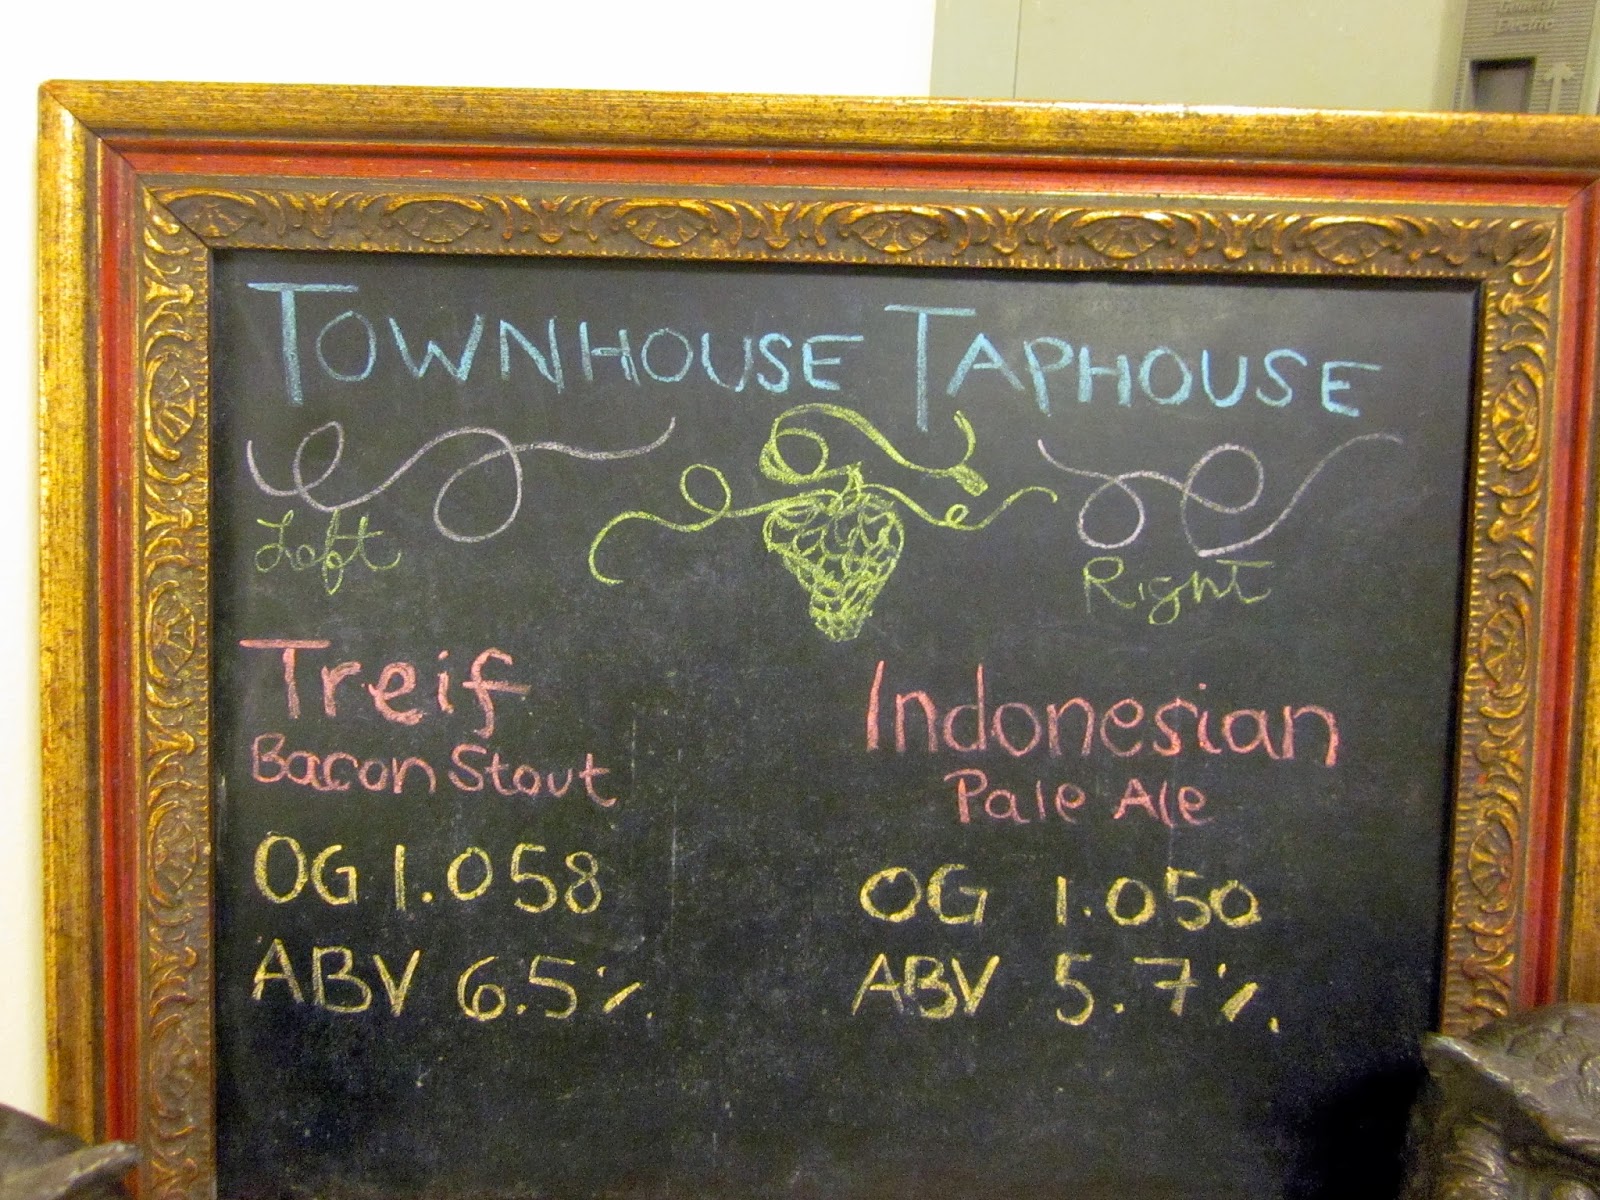 General
Electric
TOWNHOUSE TAPHOUSE
Left
Right
Treif
Bacon Stout
OG 1.058
ABV 6.5%
Indonesian
Pale Ale
OG 1.050
ABV 5.7%